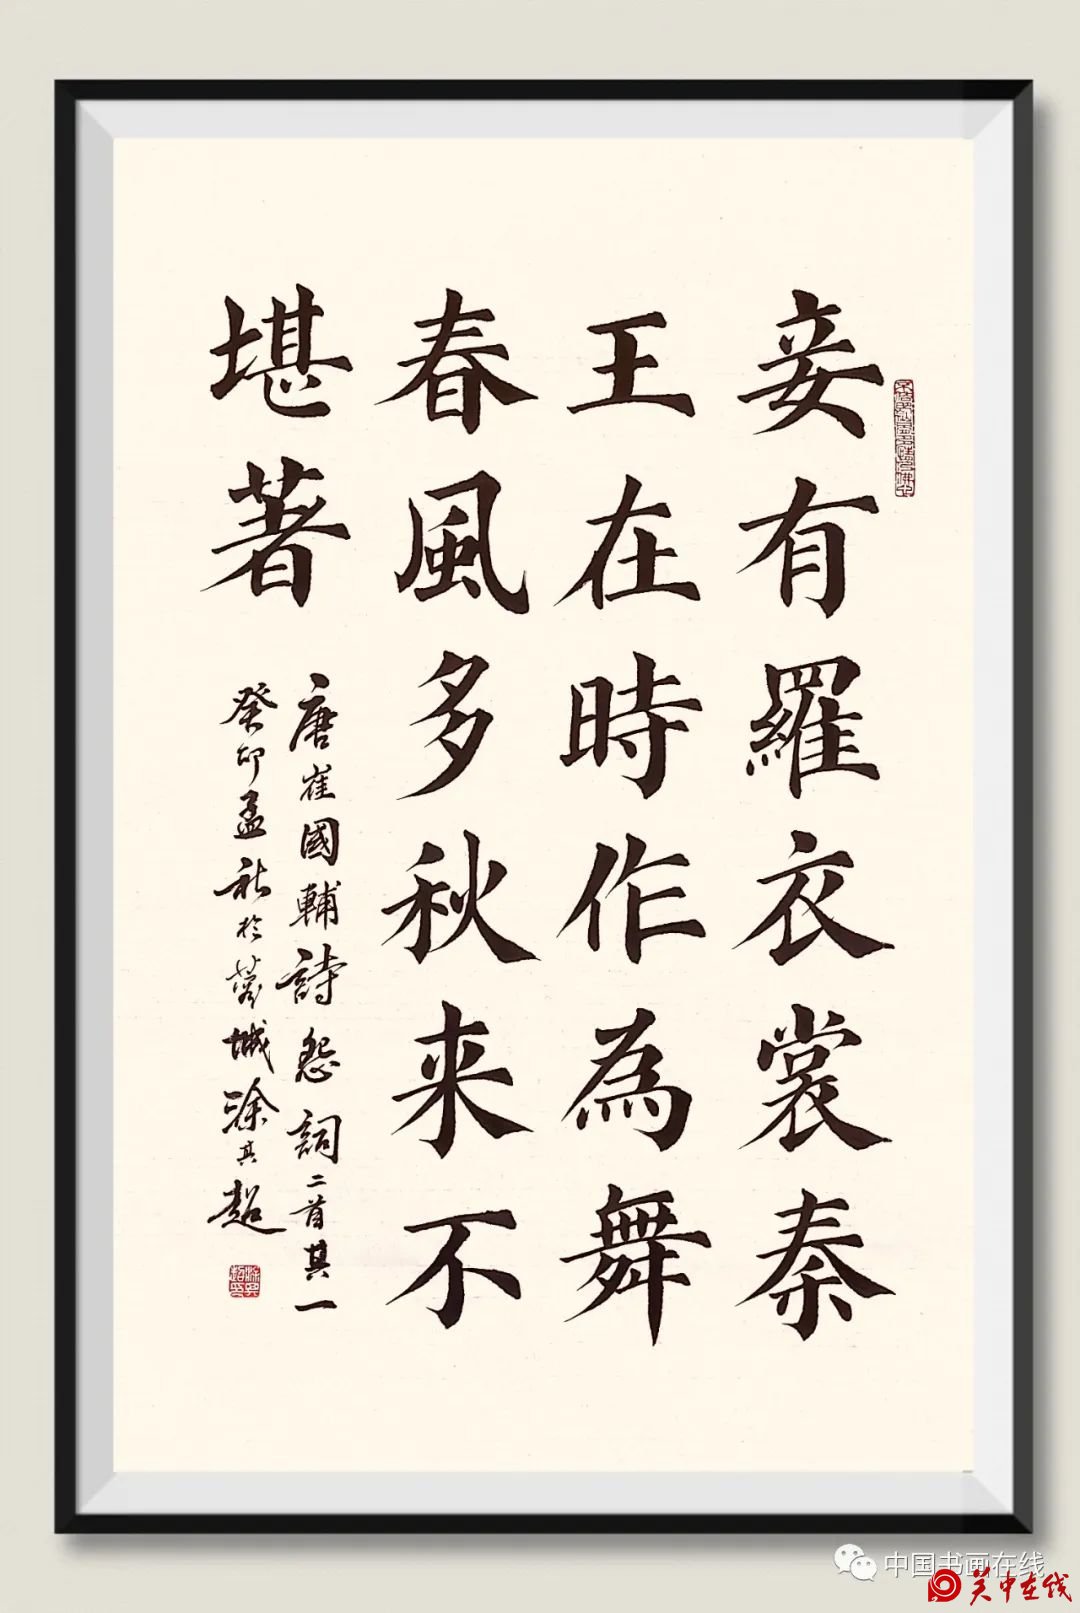 妾有羅衣裳秦
王在時作為舞
春風多秋来不
堪著
唐崔國輔詩怨詞二首其一
癸卯孟秋於蓉城涂其超
中国书画在线
关中在线